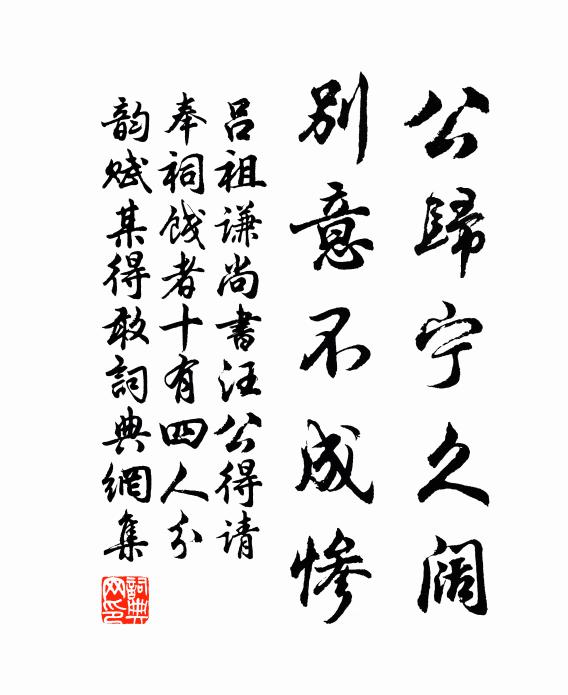 公歸宁久阔
別意不成惨
吕祖谦尚書汪公得请
奉祠饯者十有四人分
韵赋某得敢詞典網集
詞典網印